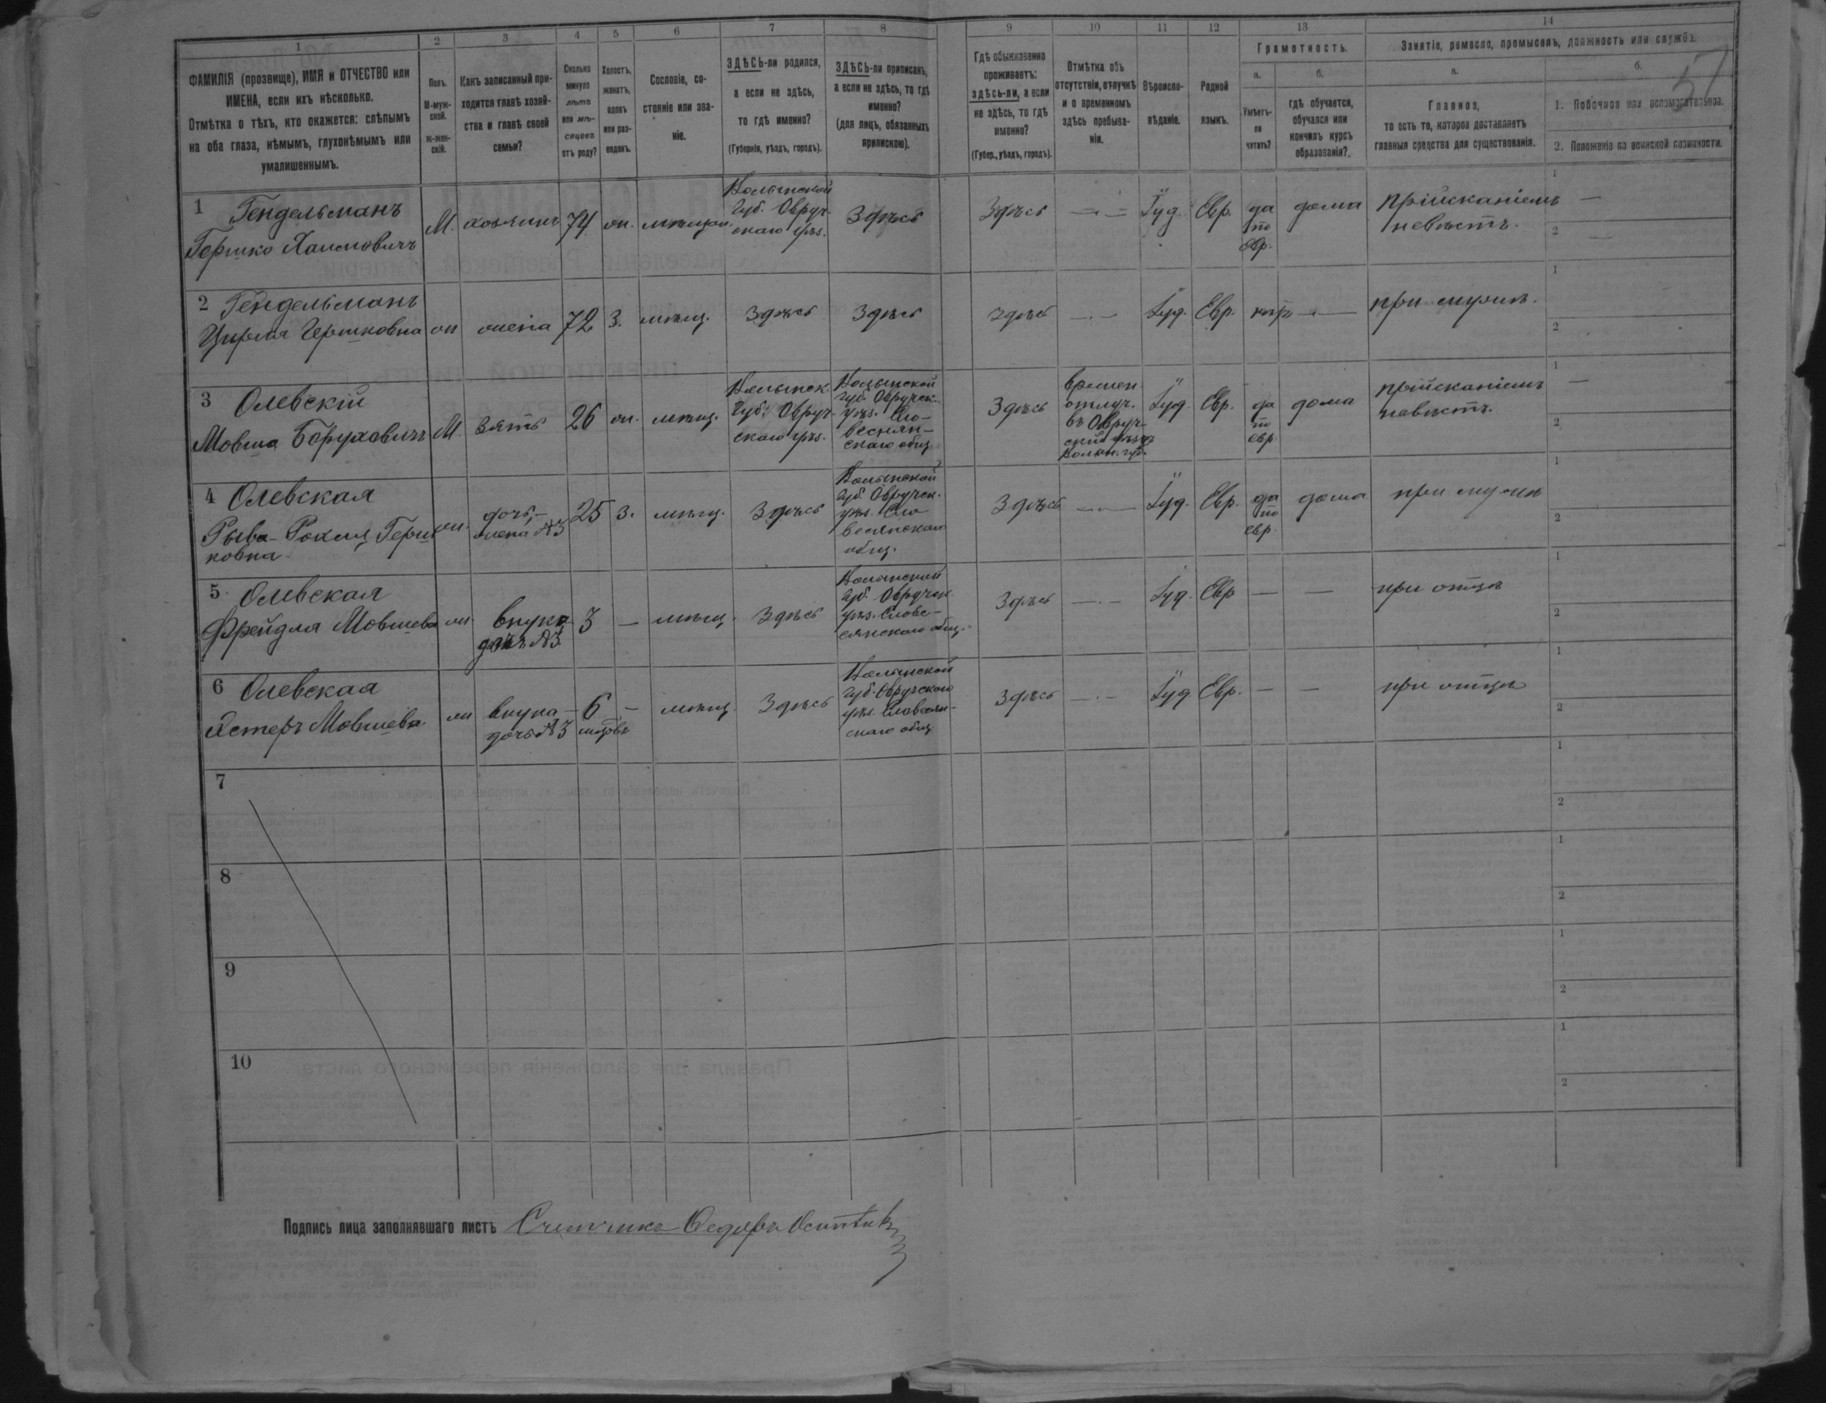 1 2 3 4 5 6 7 8 9 10 11 12 13 14
57
ФАМИЛІЯ (прозвище), ИМЯ и ОТЧЕСТВО или
ИМЕНА, если ихъ нѣсколько.
Отмѣтка о тѣхъ, кто окажется: слѣпымъ
на оба глаза, нѣмымъ, глухонѣмымъ или
умалишеннымъ.
Полъ.
М-муж-
ской.
ж-жен-
скій.
Какъ записанный при-
ходится главѣ хозяй-
ства и главѣ своей
семьи?
Сколько
минуло
лѣтъ
или мѣ-
сяцевъ
отъ роду?
Холостъ,
женатъ,
вдовъ
или раз-
веденъ.
Сословіе, со-
стояніе или зва-
ніе.
ЗДѢСЬ-ли родился,
а если не здѣсь,
то гдѣ именно?
(Губернія, уѣздъ, городъ).
ЗДѢСЬ-ли приписанъ,
а если не здѣсь, то гдѣ
именно?
(для лицъ, обязанныхъ
припискою).
Гдѣ обыкновенно
проживаетъ:
здѣсь-ли, а если
не здѣсь, то гдѣ
именно?
(Губер., уѣздъ, городъ).
Отмѣтка объ
отсутствіи, отлучкѣ
и о временномъ
здѣсь пребыва-
ніи.
Вѣроиспо-
вѣданіе.
Родной
языкъ.
Грамотность.
а.
Умѣетъ-
ли
читать?
б.
гдѣ обучается,
обучался или
кончилъ курсъ
образованія?
Занятіе, ремесло, промыселъ, должность или служба.
а.
Главное,
то есть то, которое доставляетъ
главныя средства для существованія.
б.
1. Побочное или вспомогательное.
2. Положеніе по воинской повинности.
1 Гендельманъ
Гершко Хаимовичъ
М. хозяинъ 74 ж. мѣщан.
Волынской
Губ. Овруч-
скаго уѣз.
Здѣсь Здѣсь — · — Іуд. Евр.
да
по
евр.
дома
пріисканіемъ
невѣстъ.
1 —
2 —
2 Гендельманъ
Цирля Гершковна
ж жена 72 з. мѣщ. Здѣсь Здѣсь здѣсь — · — Іуд. Евр. нѣтъ — при мужѣ.
1
2
3 Олевскій
Мовша Боруховичъ
М. зять 26 ж. мѣщ.
Волынск.
Губ. Овруч-
скаго уѣз.
Волынской
губ. Овручск.
уѣз. Сло-
веснян-
скаго общ.
Здѣсь
времен.
отлуч.
въ Овруч-
скій уѣздъ
Волын. губ.
Іуд. Евр.
да
по
евр.
дома
пріисканіемъ
невѣстъ.
1 —
2
4 Олевская
Рыва-Рохля Герш-
ковна
ж.
дочь,—
жена №3
25 з. мѣщ. Здѣсь
Волынской
губ. Овручск.
уѣз. Сло-
весянскаго
общ.
Здѣсь — · — Іуд. Евр.
да
по
евр.
дома при мужѣ
1
2
5. Олевская
Фрейдля Мовшева
ж
внучка
дочь №3
3 — мѣщ. Здѣсь
Волынской
губ. Овручск.
уѣз. Слове-
сянскаго общ.
Здѣсь — · — Іуд. Евр — — при отцѣ
1
2
6 Олевская
Эстеръ Мовшева
ж
внука —
дочь №3
6
—
мѣщ. Здѣсь
Волынской
губ. Овручскаго
уѣз. Словесян-
скаго общ
Здѣсь — · — Іуд Евр. — — при отцѣ
1
2
7
1
2
8
1
2
9
1
2
10
1
2
Подпись лица заполнявшаго листъ Счетчикъ Федоръ